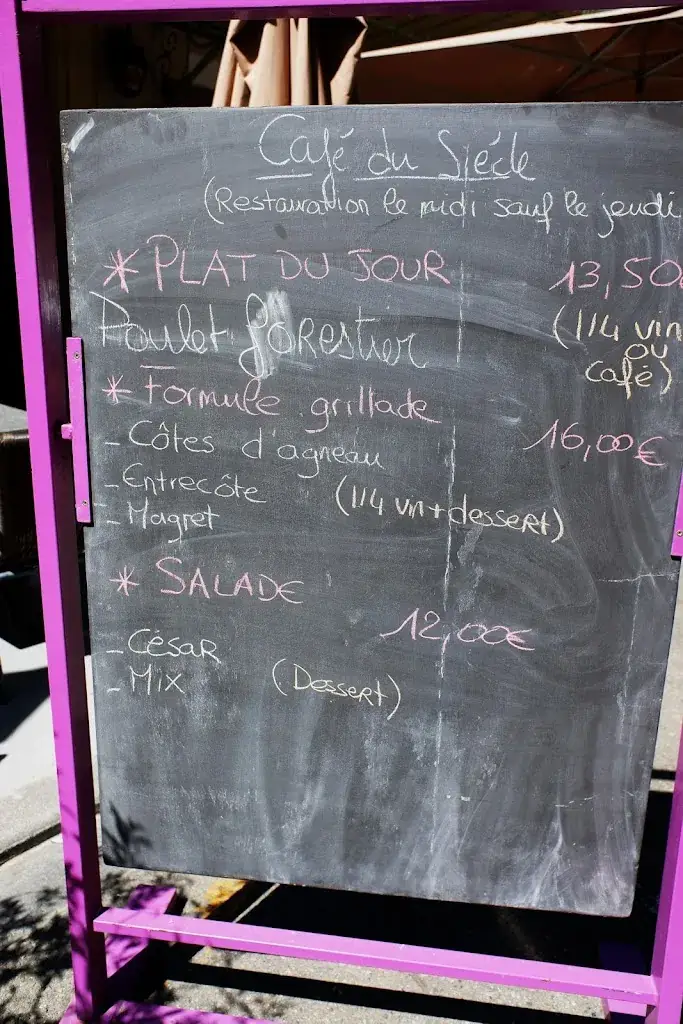 Café du Siécle
(Restauration le midi sauf le jeudi
* PLAT DU JOUR 13,50
Poulet forestier (1/4 vin
ou
café)
* Formule grillade
- Côtes d'agneau 16,00€
- Entrecôte (1/4 vin + dessert)
- Magret
* SALADE
12,00€
- César
- Mix (Dessert)